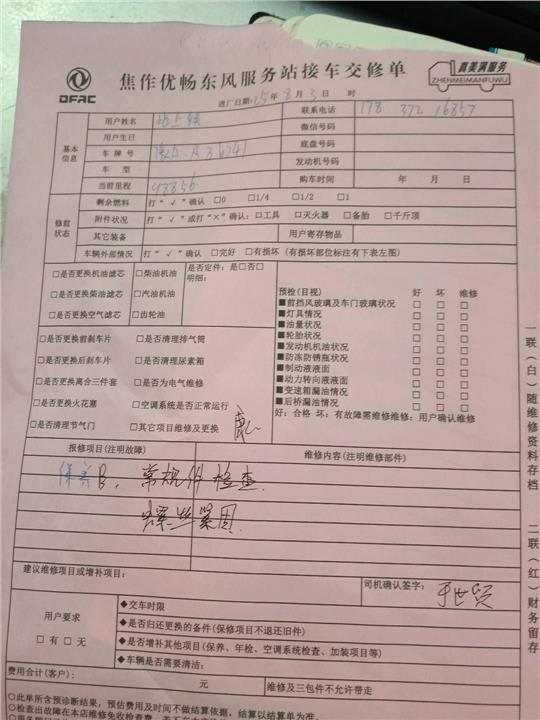 DFAC
焦作优畅东风服务站接车交修单
真美满服务
ZHENMEIMANFUWU
进厂日期:25年8月3日 时
基本信息
用户姓名
联系电话 178 372 16857
用户生日
微信号码
车牌号
底盘号码
车型
发动机号码
当前里程 93856
购车时间 年 月 日
修前状态
剩余燃料 打“√”确认 □0 □1/4 □1/2 □1
附件状况 打“√”或打“×”确认:□工具 □灭火器 □备胎 □千斤顶
其它装备
用户寄存物品
车辆外部情况 打“√”确认 □完好 □有损坏 (有损坏部位标注有下表左图)
□是否更换机油滤芯 □柴油机油
□是否更换柴油滤芯 □汽油机油
□是否更换空气滤芯 □齿轮油
是否定件: 是□否□
明细:
□是否更换前刹车片 □是否清理排气筒
□是否更换后刹车片 □是否清理尿素箱
□是否更换离合三件套 □是否为电气维修
□是否更换火花塞 □空调系统是否正常运行
□是否清理节气门 □其它项目维修及更换
预检(目视) 好 坏 维修
■前挡风玻璃及车门玻璃状况 □ □ □
■灯具情况 □ □ □
■油量状况 □ □ □
■轮胎状况 □ □ □
■发动机机油状况 □ □ □
■防冻防锈瓶状况 □ □ □
■制动液液面 □ □ □
■动力转向液液面 □ □ □
■变速箱漏油情况 □ □ □
■后桥漏油情况 □ □ □
好:合格 坏:有故障需维修维修:用户确认维修
报修项目(注明故障)
维修内容(注明维修部件)
保养B, 常规件检查.
螺丝紧固.
建议维修项目或增补项目:
司机确认签字:
用户要求
□有 □无
◆交车时限
◆是否归还更换的备件(保修项目不退还旧件)
◆是否增补其他项目(保养、年检、空调系统检查、加装项目等)
◆车辆是否需要清洁:
费用合计(客户): 元
维修及三包件不允许带走
○此单所含预诊断结果,预估费用及时间不做结算依据,结算以结算单为准。
一联(白)随维修资料存档
二联(红)财务留存